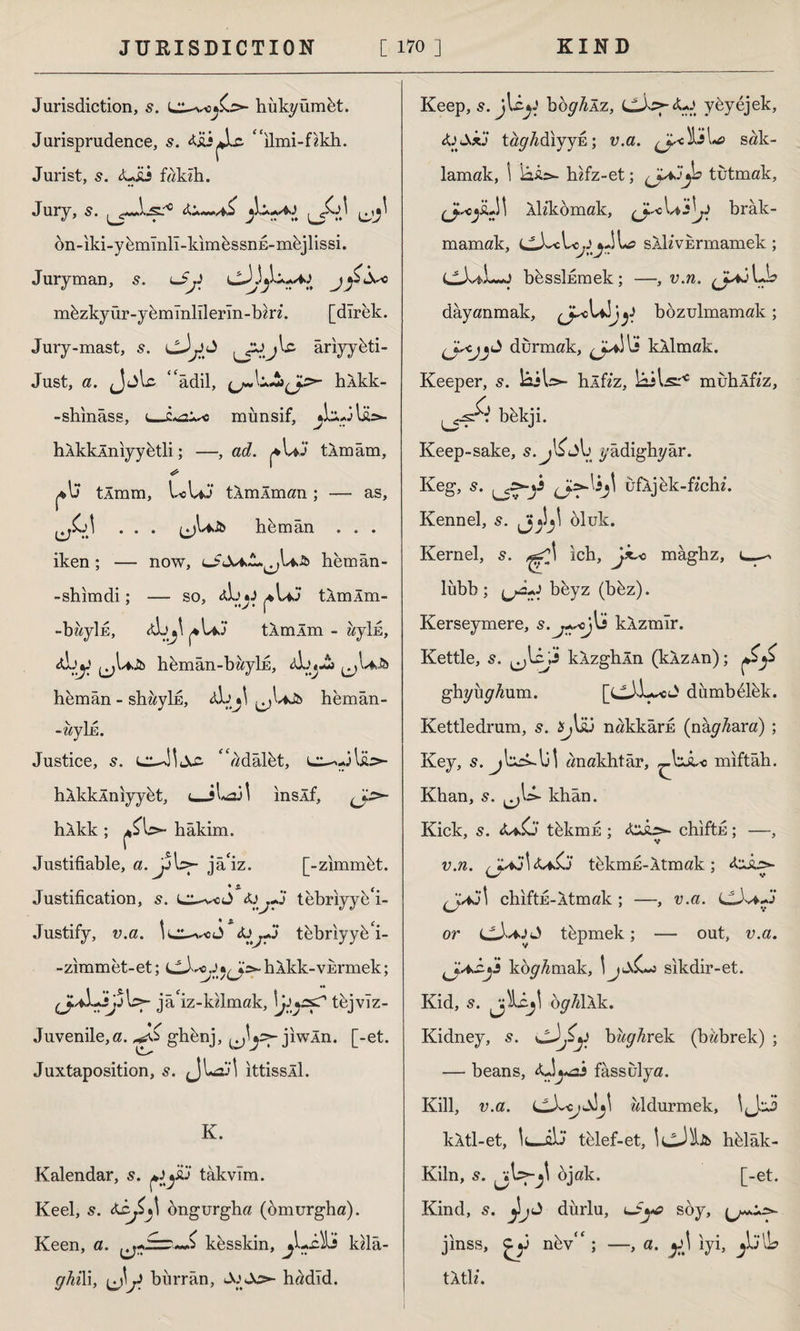 JURISDICTION [ 170 ] KIND
Jurisdiction, s. حكومت hukyūmèt.
Jurisprudence, s. علم فقه ʿʿilmi-fikh.
Jurist, s. فقيه fakīh.
Jury, s. اون ايكى يمينلى كمسه مجلسى
òn-iki-yèmīnlī-kìmèssnE-mèjlissi.
Juryman, s. مذكور يمينليلرك برى
mèzkyūr-yèmīnlīlerīn-bìri. [dīrèk.
Jury-mast, s. عاريتى ديرك āriyyèti-
Just, a. عادل ʿʿādil, حق شناس hAkk-
-shināss, منصف mùnsif, حقانيتلى
hAkkAniyyètli; —, ad. تمام tAmām,
تام tAmm, تماما tAmAman; — as,
همان . . . ايكن hèmān . . .
iken; — now, همان شمدى hèmān-
-shimdi; — so, تمام بويله tAmAm-
-buylE, تمام اويله tAmAm - uylE,
همان بويله hèmān-buylE, همان شويله
hèmān - shuylE, همان اويله hèmān-
-uylE.
Justice, s. عدالت ʿʿadālèt, حقانيت
hAkkAniyyèt, انصاف insAf, حق
hAkk; حاكم hākim.
Justifiable, a. جائز jāʿiz. [-zimmèt.
Justification, s. تبرئه ذمت tèbriyyèʿi-
Justify, v.a. تبرئه ذمت ا tèbriyyèʿi-
-zimmèt-et; حق ويرمك hAkk-vErmek;
جائز قلمق jāʿiz-kilmak, تجويز ا tèjvīz-
Juvenile, a. كنج ghènj, جوان jiwAn. [-et.
Juxtaposition, s. اتصال ittissAl.
K.
Kalendar, s. تقويم tàkvīm.
Keel, s. اوكرغه òngurgha (òmurgha).
Keen, a. كسكين kèsskin, قلاغيلى kilā-
ghili, بران bùrrān, حديد hadīd.
Keep, s. بوغاز bòghAz, ييه جك yèyéjek,
تغديه tàghdiyyE; v.a. صاقلامق sàk-
lamak, حفظ ا hifz-et; طوتمق tùtmak,
القومق Alikòmak, براقمامق bràk-
mamak, صالى ويرمامك sAlivErmamek;
بسلمك bèsslEmek; —, v.n. طيانمق
dàyanmak, بوزولمامق bòzulmamak;
دورمق dūrmak, قالمق kAlmak.
Keeper, s. حافظ hAfiz, محافظ mùhAfiz,
بكجى bèkji.
Keep-sake, s. يادكار yādighyār.
Keg, s. اوفاجق فوچى ùfAjèk-fichi.
Kennel, s. اولوق òluk.
Kernel, s. ايچ ìch, مغز màghz, لب
lùbb; بيض bèyz (bèz).
Kerseymere, s. قازمير kAzmīr.
Kettle, s. قزغان kAzghAn (kAzAn); كوكم
ghyùghum. [دمبلك dùmbélèk.
Kettledrum, s. نقاره nakkārE (nàghara);
Key, s. اناختار ànakhtār, مفتاح miftāh.
Khan, s. خان khān.
Kick, s. تكمه tèkmE; چفته chìftE; —,
v.n. تكمه اتمق tèkmE-Atmak; چفته
اتمق chìftE-Atmak; —, v.a. تيمك
or دبمك tèpmek; — out, v.a.
قوغمق kòghmak, سكدر ا sìkdir-et.
Kid, s. اوغلاق òghlAk.
Kidney, s. بوكرك bùghrek (bùbrek);
— beans, فصوليه fàssūlya.
Kill, v.a. اولدرمك ùldurmek, قتل ا
kAtl-et, تلف ا tèlef-et, هلاك ا hèlāk-
Kiln, s. اوجاق òjak. [-et.
Kind, s. درلو dùrlu, صوى sòy, جنس
jìnss, نوع nèvʿʿ; —, a. ايو ìyi, طاتلو
tAtli.